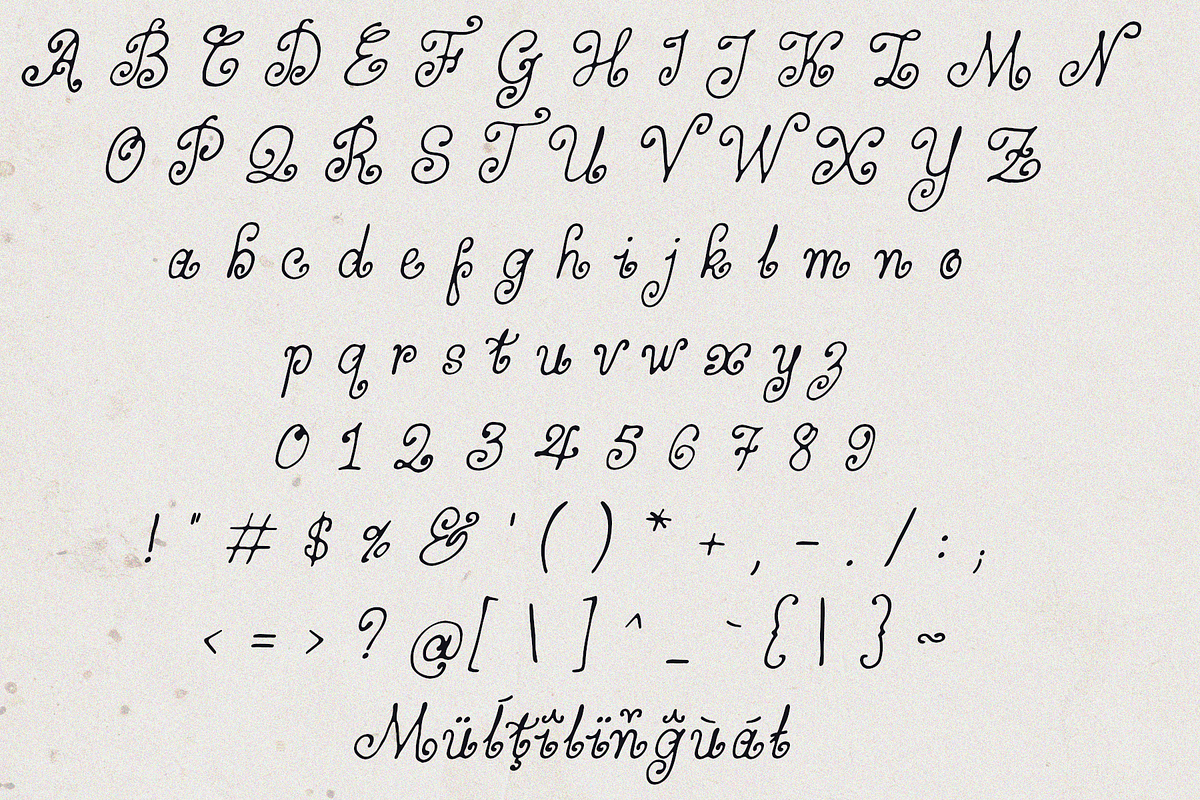 A B C D E F G H I J K L M N
O P Q R S T U V W X Y Z
a b c d e f g h i j k l m n o
p q r s t u v w x y z
0 1 2 3 4 5 6 7 8 9
! " # $ % & ' ( ) * + , - . / : ;
< = > ? @ [ \ ] ^ _ ` { | } ~